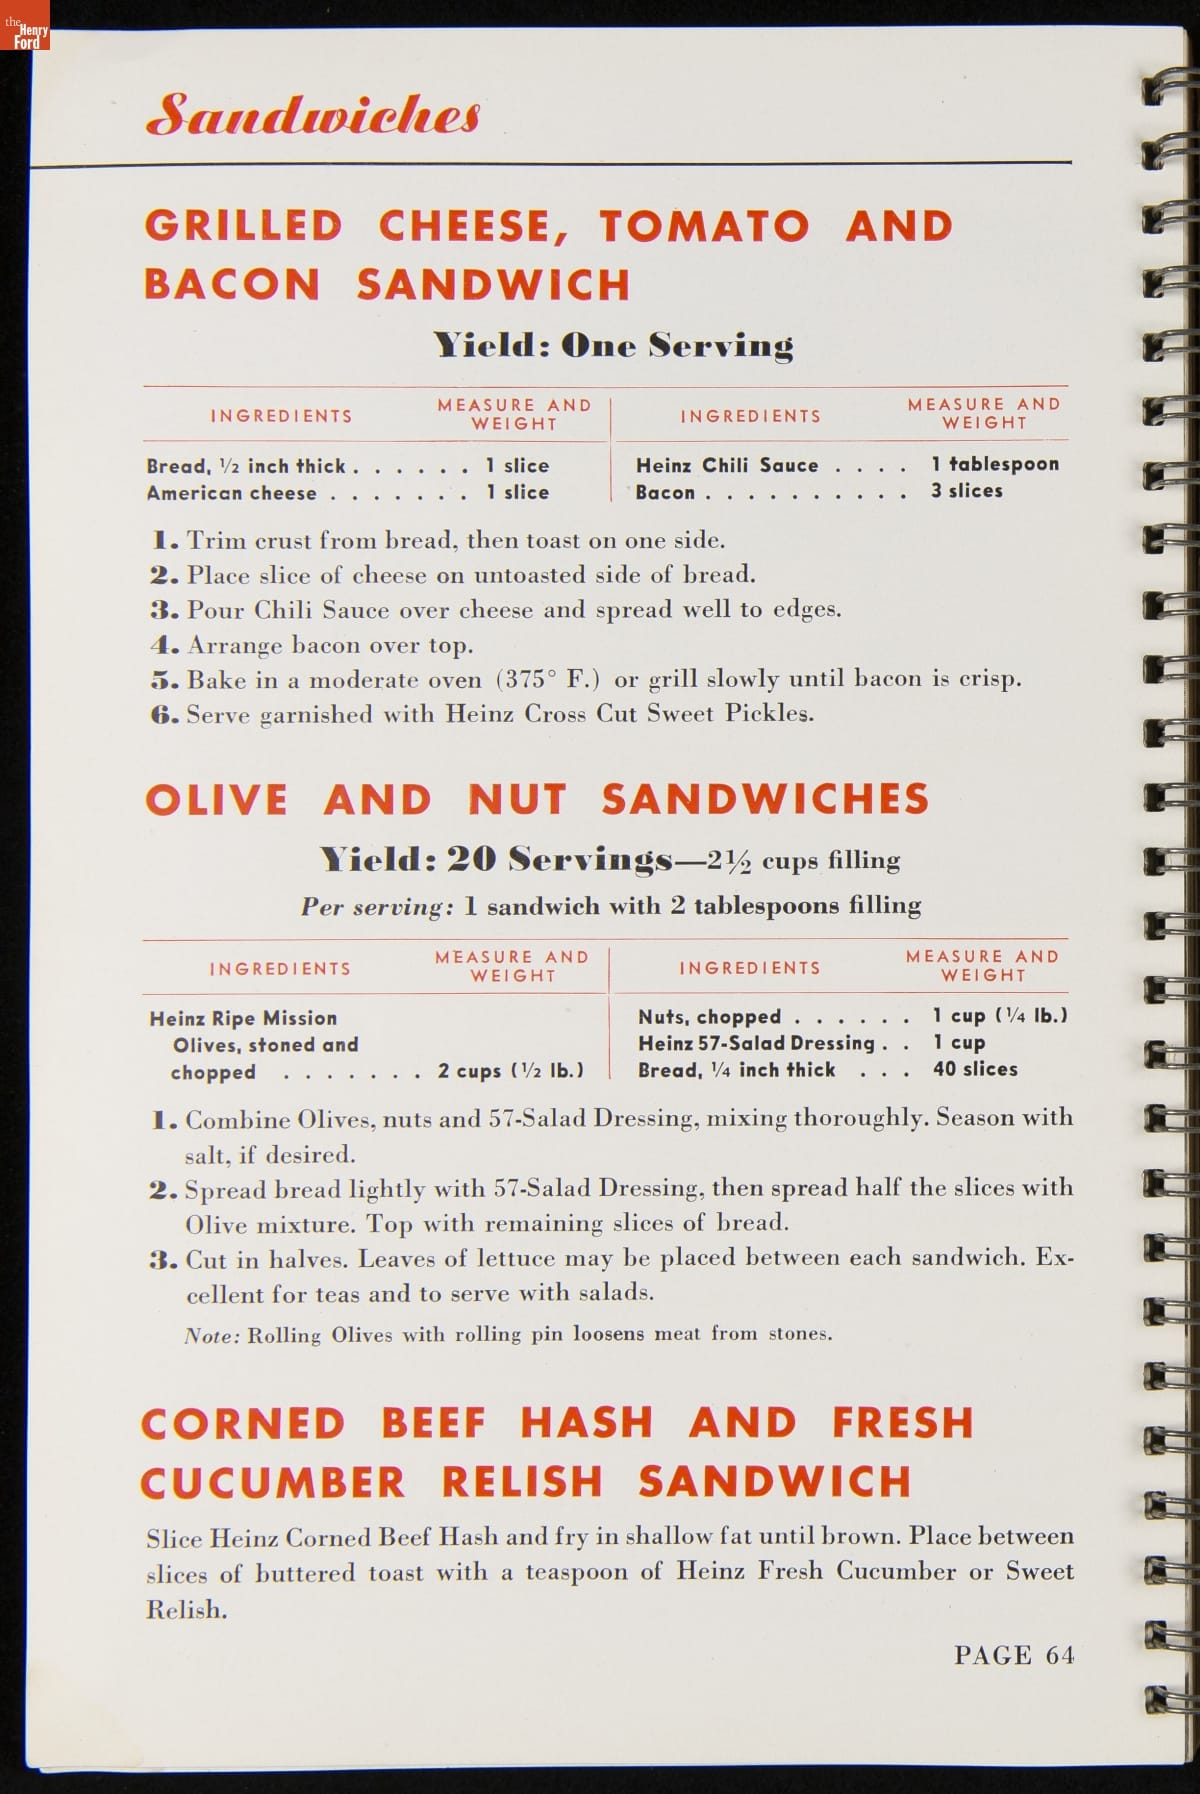 the
Henry
Ford
Sandwiches
GRILLED CHEESE, TOMATO AND
BACON SANDWICH
Yield: One Serving
INGREDIENTS MEASURE AND WEIGHT INGREDIENTS MEASURE AND WEIGHT
Bread, ½ inch thick . . . . . . 1 slice Heinz Chili Sauce . . . . 1 tablespoon
American cheese . . . . . . . 1 slice Bacon . . . . . . . . . . 3 slices
1. Trim crust from bread, then toast on one side.
2. Place slice of cheese on untoasted side of bread.
3. Pour Chili Sauce over cheese and spread well to edges.
4. Arrange bacon over top.
5. Bake in a moderate oven (375° F.) or grill slowly until bacon is crisp.
6. Serve garnished with Heinz Cross Cut Sweet Pickles.
OLIVE AND NUT SANDWICHES
Yield: 20 Servings—2½ cups filling
Per serving: 1 sandwich with 2 tablespoons filling
INGREDIENTS MEASURE AND WEIGHT INGREDIENTS MEASURE AND WEIGHT
Heinz Ripe Mission
Olives, stoned and
chopped . . . . . . . 2 cups (½ lb.)
Nuts, chopped . . . . . . 1 cup (¼ lb.)
Heinz 57-Salad Dressing . . 1 cup
Bread, ¼ inch thick . . . 40 slices
1. Combine Olives, nuts and 57-Salad Dressing, mixing thoroughly. Season with
salt, if desired.
2. Spread bread lightly with 57-Salad Dressing, then spread half the slices with
Olive mixture. Top with remaining slices of bread.
3. Cut in halves. Leaves of lettuce may be placed between each sandwich. Ex-
cellent for teas and to serve with salads.
Note: Rolling Olives with rolling pin loosens meat from stones.
CORNED BEEF HASH AND FRESH
CUCUMBER RELISH SANDWICH
Slice Heinz Corned Beef Hash and fry in shallow fat until brown. Place between
slices of buttered toast with a teaspoon of Heinz Fresh Cucumber or Sweet
Relish.
PAGE 64